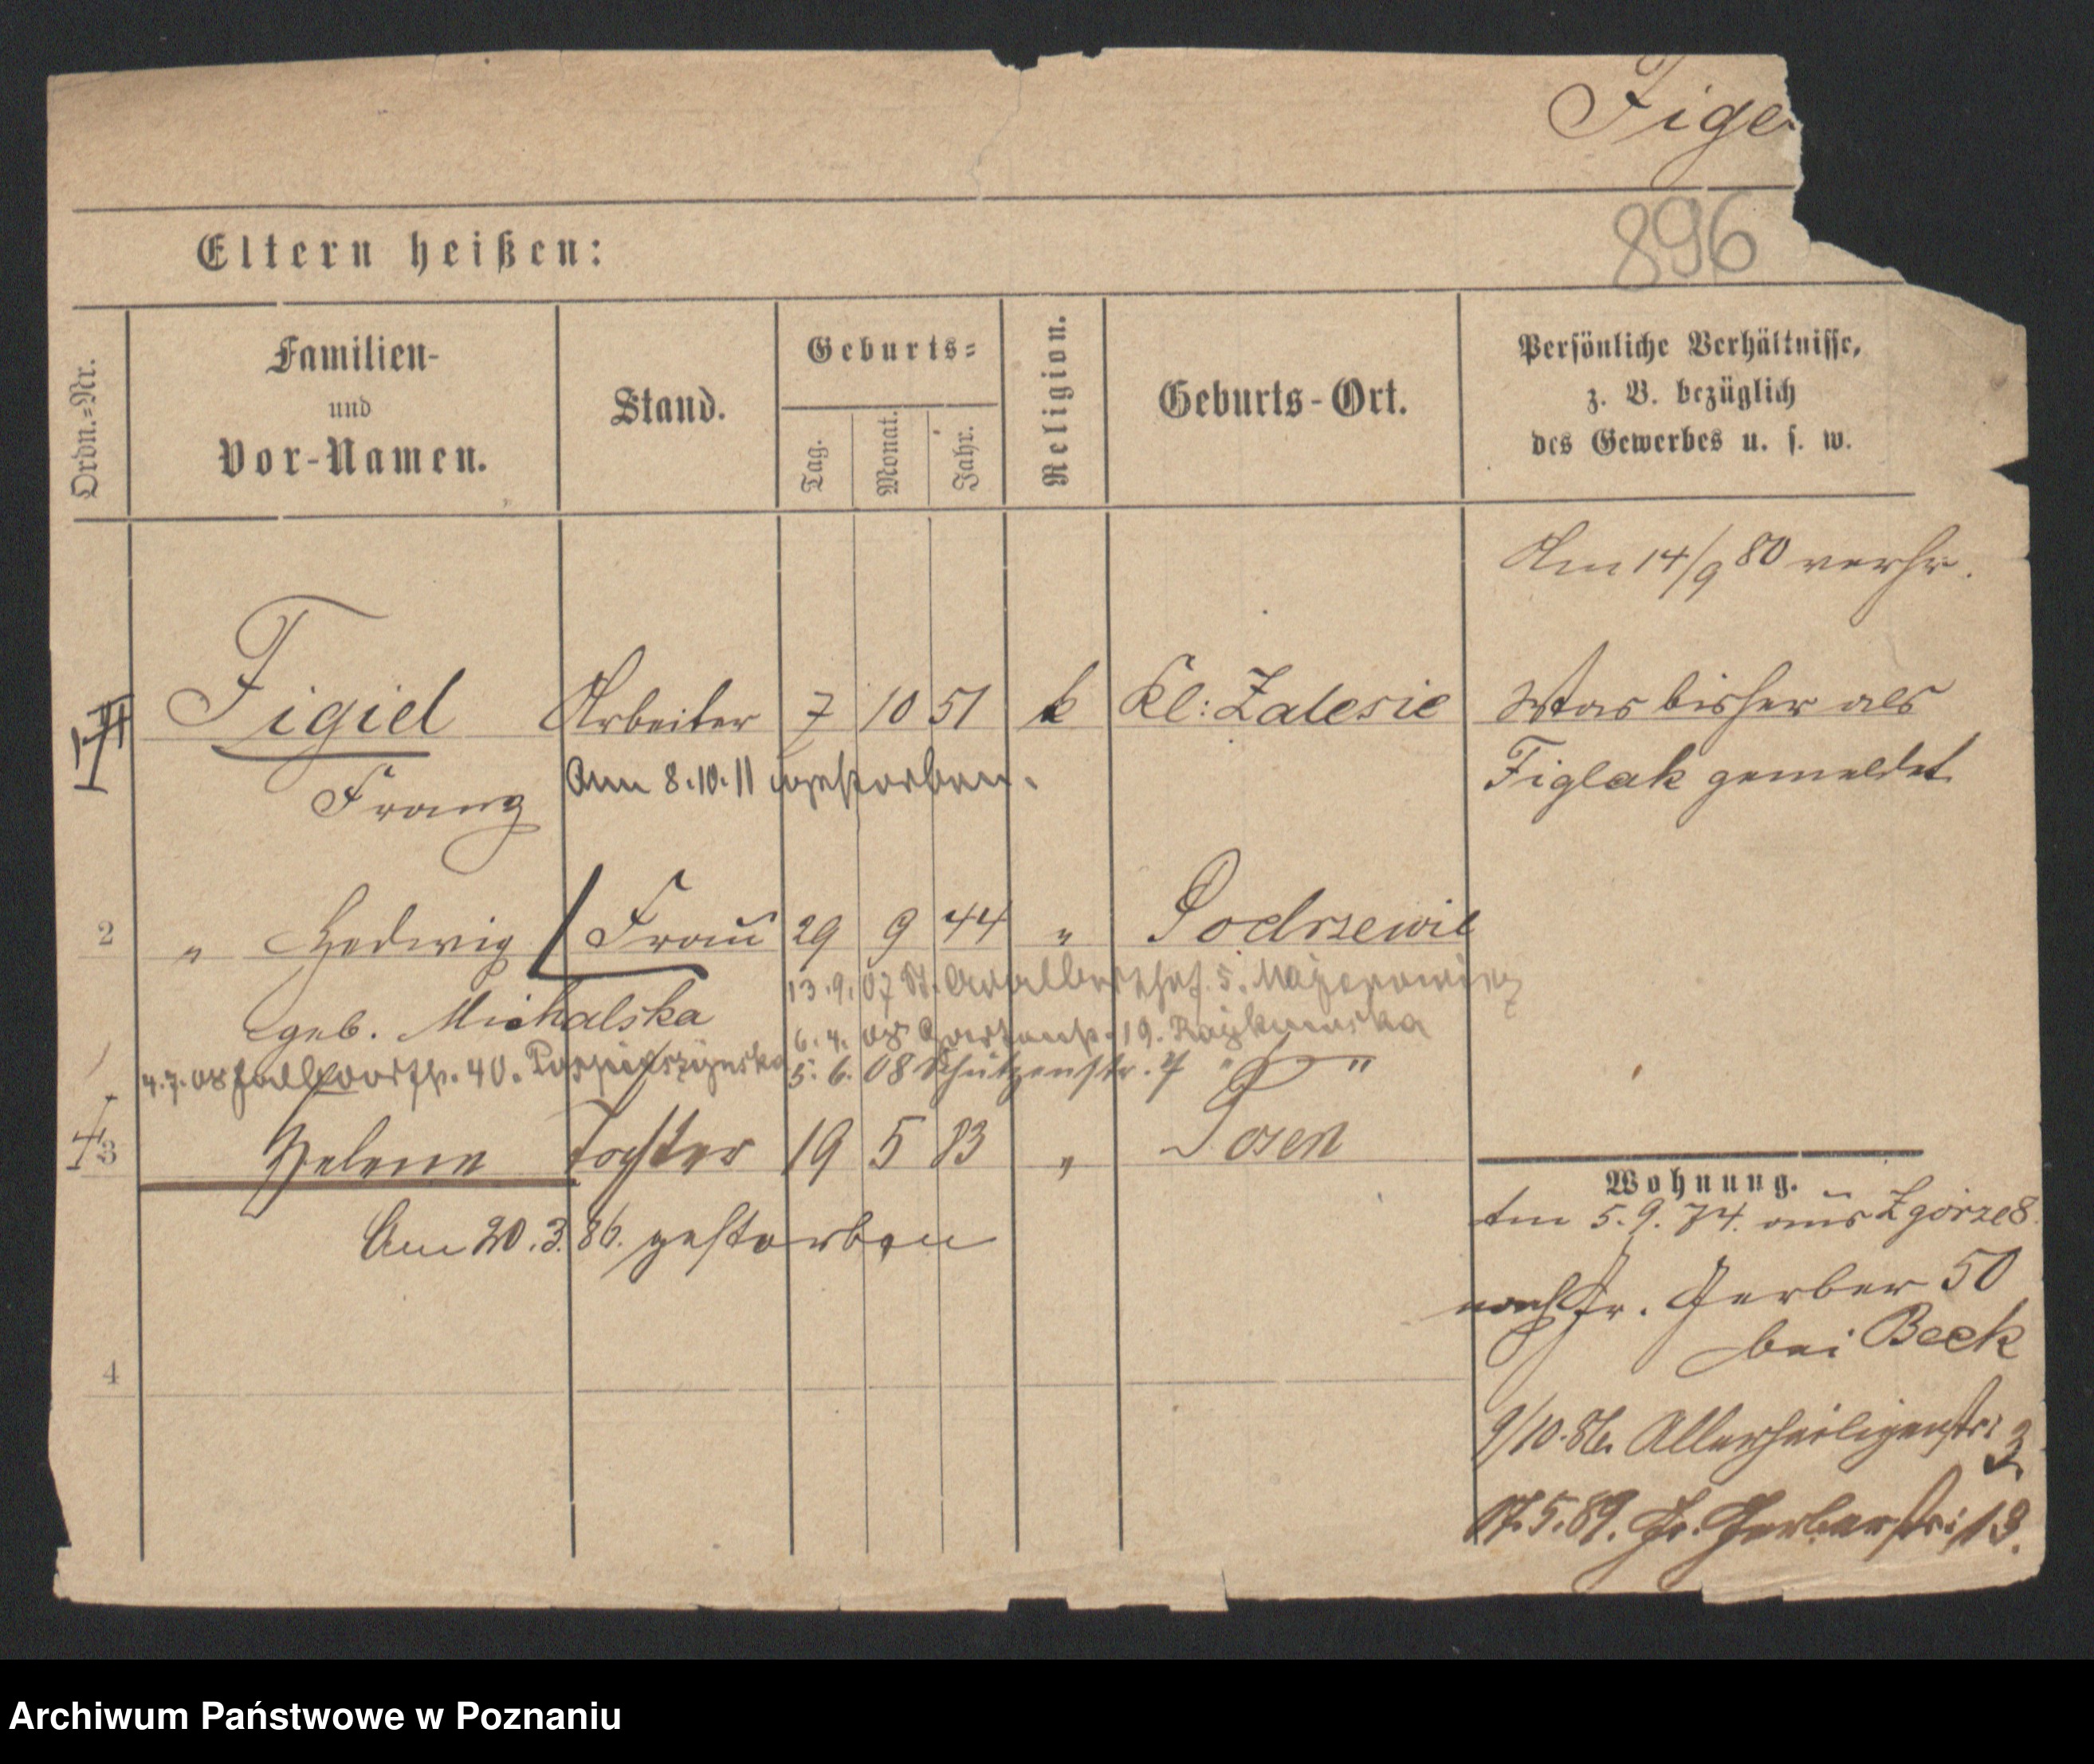 Fige
896
Eltern heißen:
Ordn.=Nr.
Familien-
und
Vor-Namen.
Stand.
Geburts=
Tag.
Monat.
Jahr.
Religion.
Geburts-Ort.
Persönliche Verhältnisse,
z. B. bezüglich
des Gewerbes u. s. w.
Am 14/9 80 verhr.
Figiel Arbeiter 7 10 51 k Kl: Zalesie
Franz
Am 8.10.11 gestorben.
War bisher als
Figlak gemeldet
2 " Hedwig Frau 29 9 44 " Podrzewie
geb. Michalska
13.9.07 St. Adalbert 5.
6.4.08 19.
4.7.08 40. 5.6.08 Schützenstr. 7 " "
3 Helene Tochter 19 5 83 " Posen
Am 20.3.86. gestorben
4
Wohnung.
5.9.74. aus
nach Gr. Gerber 50
bei Beck
9/10.86. Allerheiligenstr: 3
17.5.89. Gr. Gerberstr: 13.
Archiwum Państwowe w Poznaniu